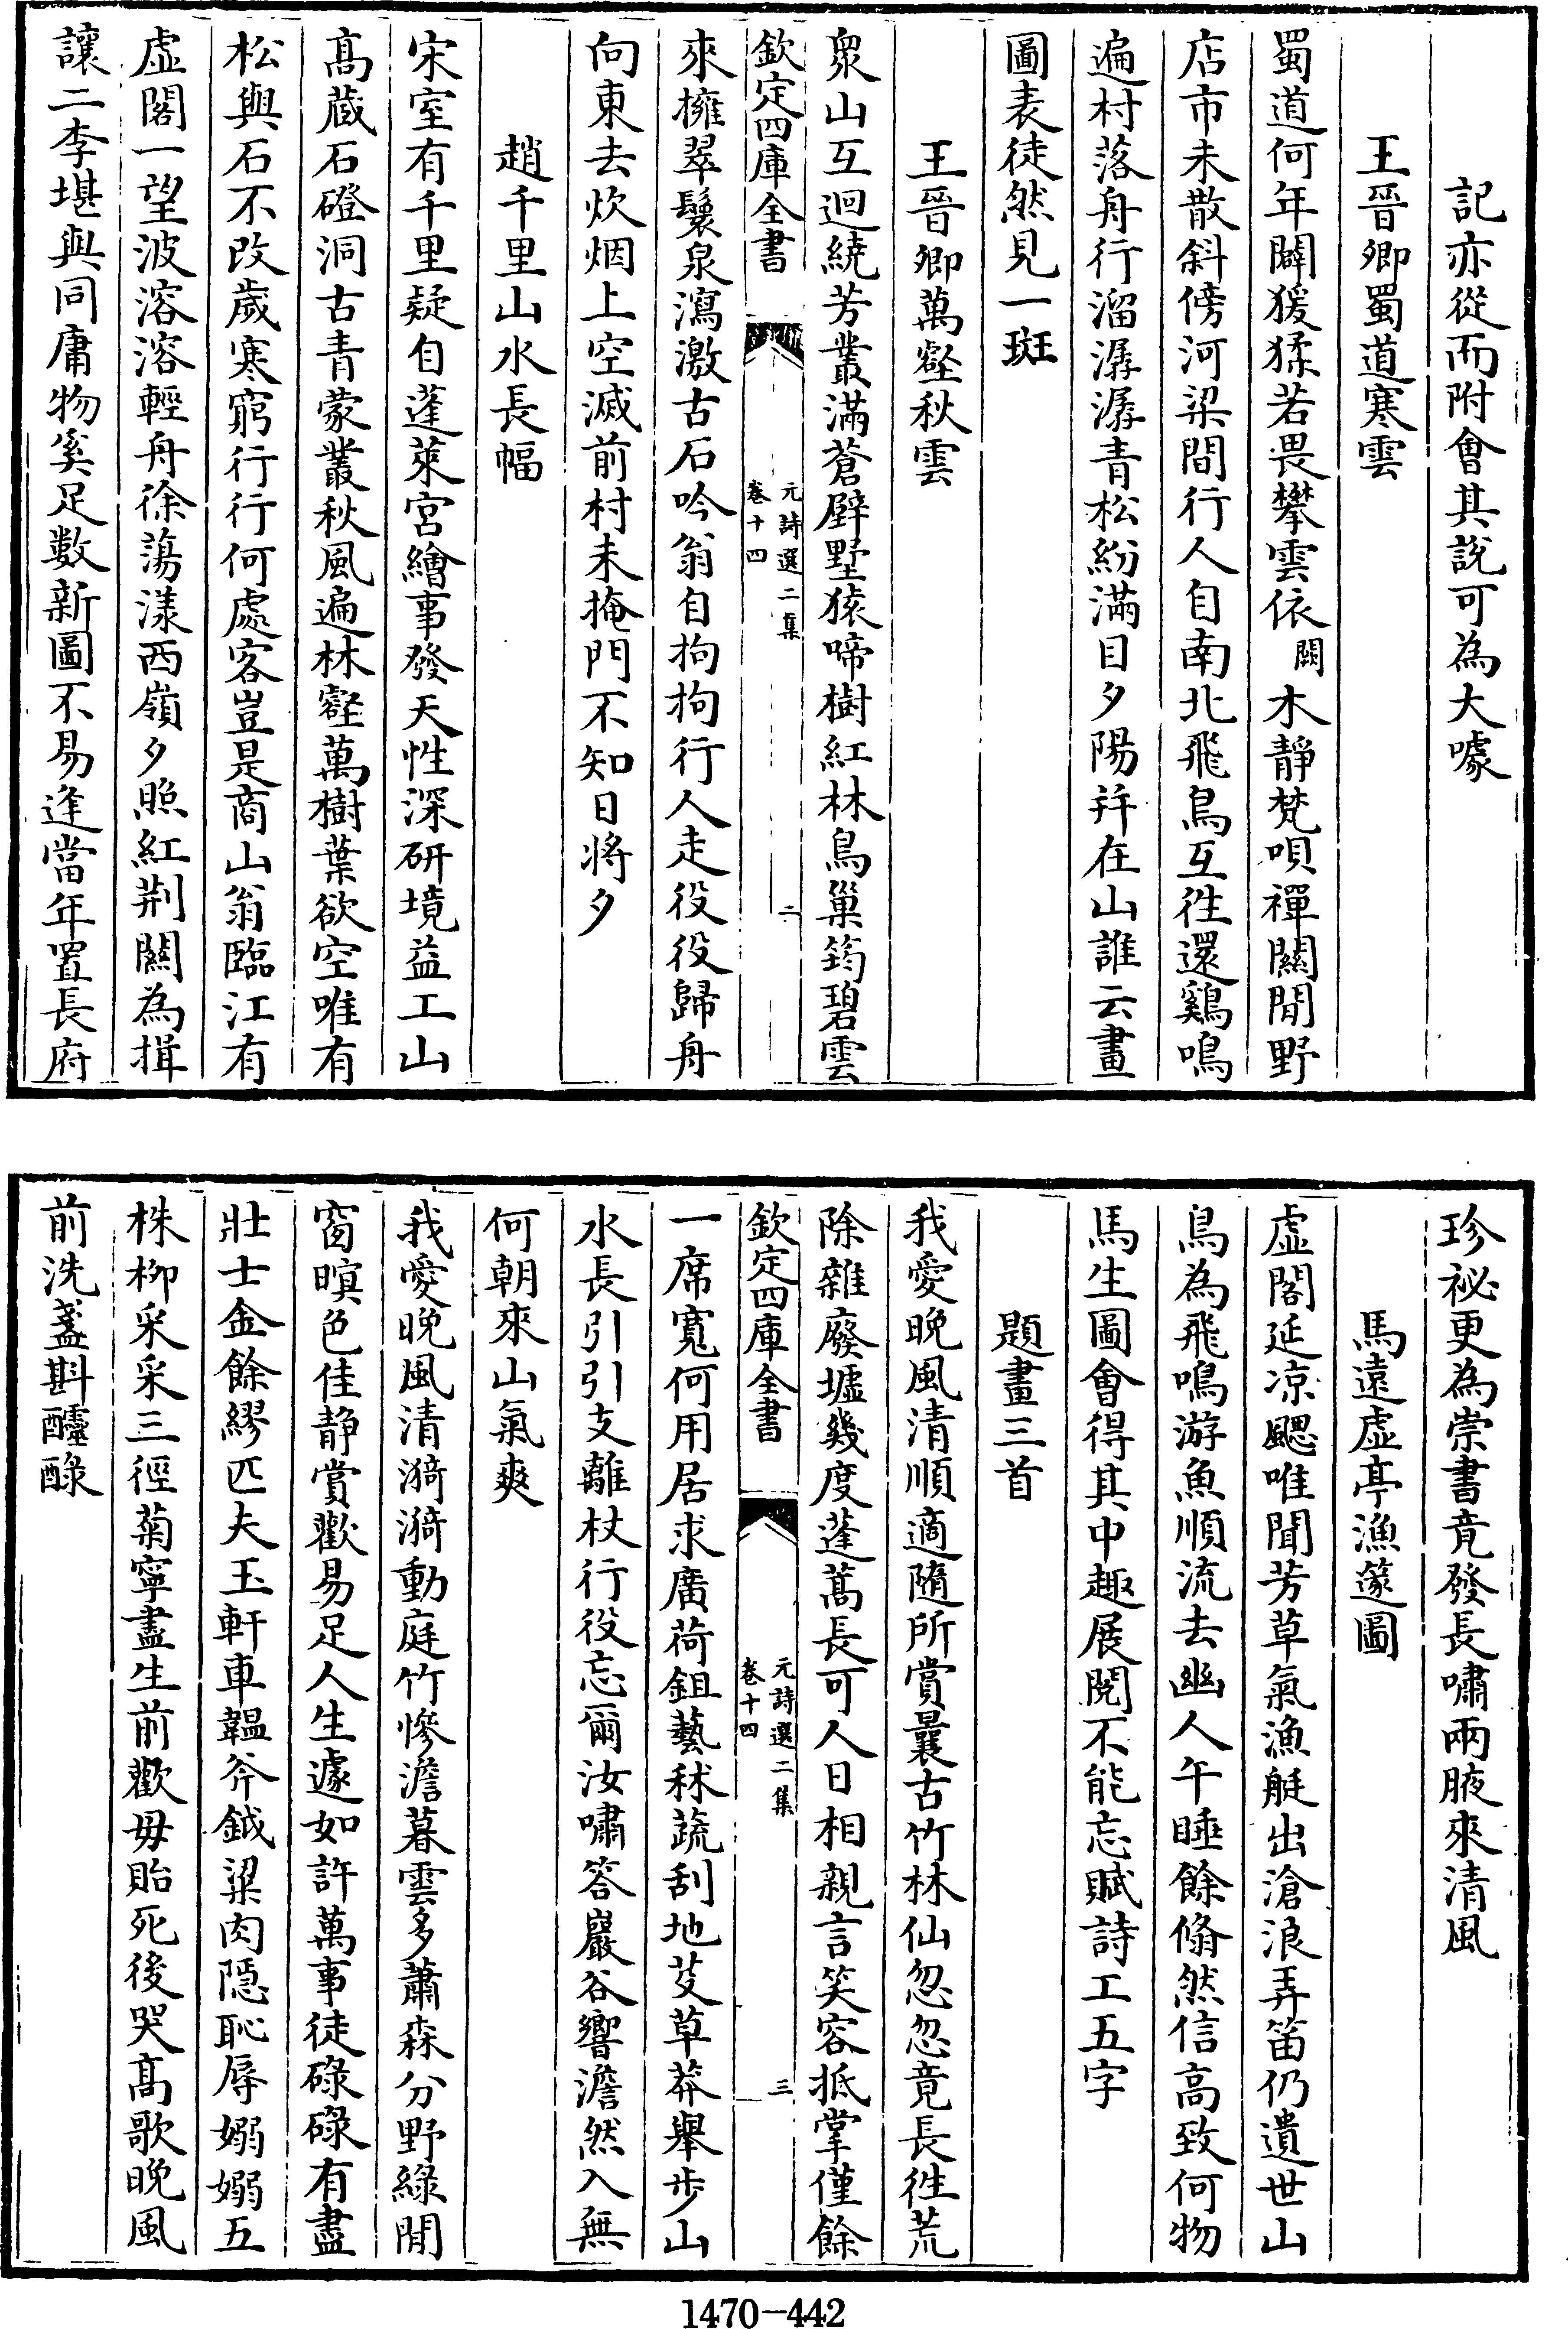 記亦從而附會其說可為大噱
王晉卿蜀道寒雲
蜀道何年闢猨猱若畏攀雲依闕木靜梵唄禪關閒野
店市未散斜傍河梁間行人自南北飛鳥互徃還鷄鳴
遍村落舟行溜潺潺青松紛滿目夕陽并在山誰云畫
圖表徒然見一斑
王晉卿萬壑秋雲
衆山互迴繞芳叢滿蒼壁野猿啼樹紅林鳥巢筠碧雲
欽定四庫全書
元詩選二集
卷十四
二
來擁翠鬟泉瀉激古石吟翁自拘拘行人走役役歸舟
向東去炊烟上空滅前村未掩門不知日將夕
趙千里山水長幅
宋室有千里疑自蓬萊宮繪事發天性深研境益工山
髙蔵石磴洞古青蒙叢秋風遍林壑萬樹葉欲空唯有
松與石不改歲寒窮行行何處客豈是商山翁臨江有
虛閣一望波溶溶輕舟徐蕩漾西嶺夕照紅荆關為揖
讓二李堪與同庸物奚足數新圖不易逢當年置長府
珍祕更為崇書竟發長嘯兩腋來清風
馬遠虛亭漁篴圖
虛閣延凉颸唯聞芳草氣漁艇出滄浪弄笛仍遺世山
鳥為飛鳴游魚順流去幽人午睡餘翛然信高致何物
馬生圖會得其中趣展閱不能忘賦詩工五字
題畫三首
我愛晚風清順適隨所賞曩古竹林仙忽忽竟長徃荒
除雜廢墟幾度蓬蒿長可人日相親言笑容抵掌僅餘
欽定四庫全書
元詩選二集
卷十四
三
一席寬何用居求廣荷鉏藝秫蔬刮地芟草莽舉步山
水長引引支離杖行役忘爾汝嘯答巖谷響澹然入無
何朝來山氣爽
我愛晚風清漪漪動庭竹慘澹暮雲多蕭森分野綠閒
窗暝色佳静賞歡易足人生遽如許萬事徒碌碌有盡
壯士金餘繆匹夫玉軒車韞斧鉞梁肉隠恥辱嫋嫋五
株柳采采三徑菊寧盡生前歡毋貽死後哭髙歌晚風
前洗盞斟醽醁
1470-442